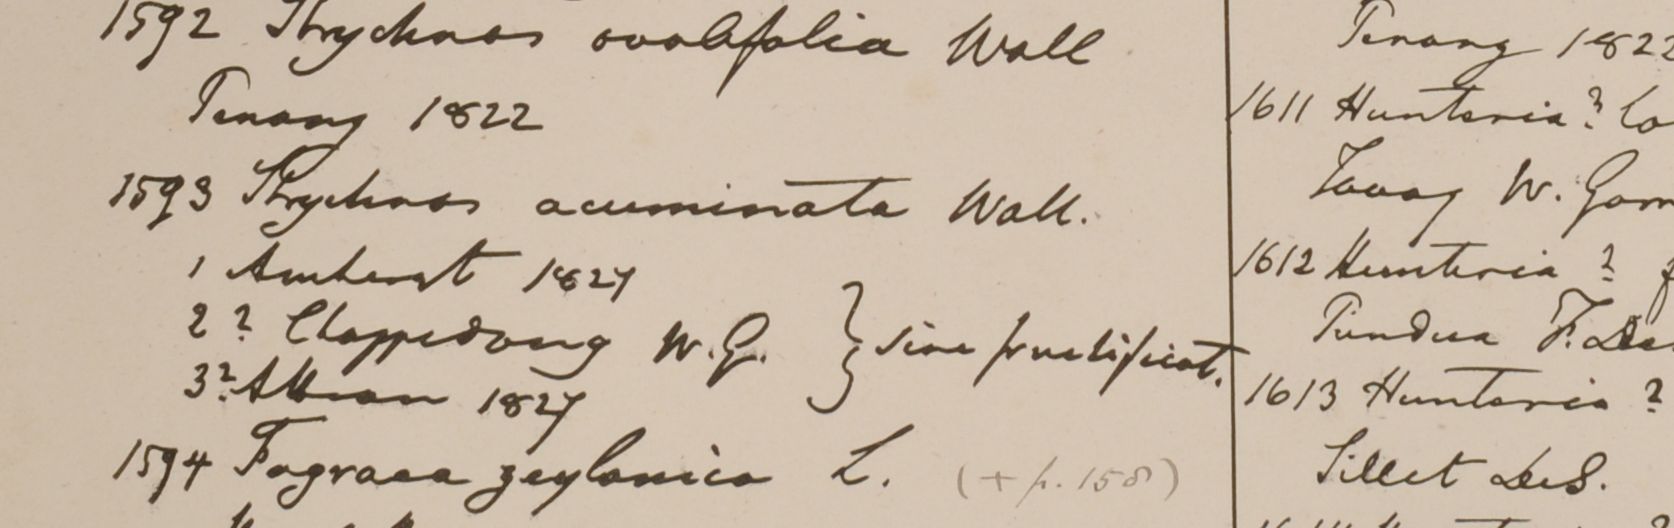 1592 Strychnos ovalifolia Wall
Penang 1822
1593 Strychnos acuminata Wall.
1 Amherst 1827
2 ? Chappedong W.G. } sine fructificat.
3? Attran 1827
1594 Fagraea zeylanica L. (+ p. 158)
Penang 1822
1611 Hunteria ?
Tavoy W. Gom
1612 Hunteria ?
Pundua F. De
1613 Hunteria ?
Sillet DeS.